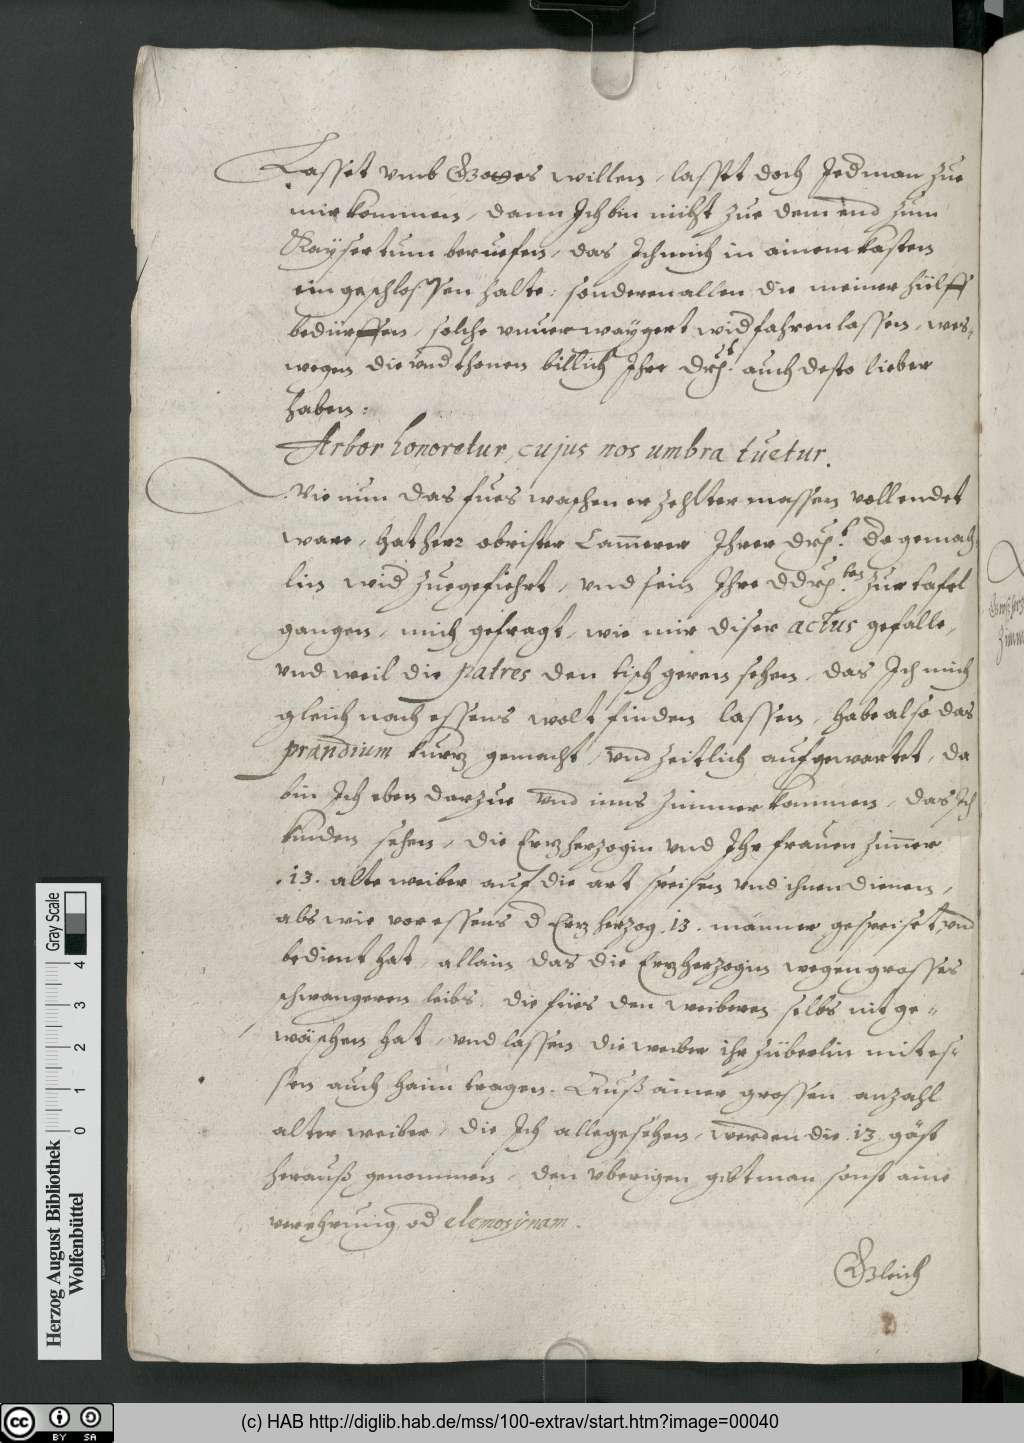 Lasset vmb Gottes willen, lasset doch Jedman zue
mir kommen, dann Ich bin nicht zue dem end zum
Kaysertum beruefen, das Ich mich in ainem kasten
eingeschlossen halte: sonderen allen die meiner hülff
bedürffen, solche vnuerwaygert widfahren lassen, wes-
wegen die vnderthonen billich Ihre Drl. auch desto lieber
haben:
Arbor honoretur, cujus nos umbra tuetur.
Wie nun das fues waschen erzehlter massen vollendet
ware, hat herr obrister Cammerer Ihrer drl. de gemach
lin wid zuegefiehrt, vnd sein Ihre ddrl. zur tafel
gangen, mich gefragt, wie mir diser actus gefalle,
vnd weil die patres den tisch geren sehen, das Ich mich
gleich nach essens wolt finden lassen, habe also das
prandium kurz gemacht, vnd zeitlich aufgewartet, da
bin Ich eben darzue vnd inns zimmer kommen, das Ich
kinden sehen, die Erzherzogin vnd Ihr frauenzimer
.13. alte weiber auf die art speisen vnd ihnen dienen,
als wie vor essens d Erzherzog .13. männer gespeiset, vnd
bedient hat, allain das die Erzherzogin wegen grosses
schwangeren leibs, die fües den weiberen selbs nit ge-
wäschen hat, vnd lassen die weiber ihr züberlin mit es-
sen auch haim tragen. Auß ainer grossen anzahl
alter weiber, die Ich alle gesehen, werden die .13. gäst
herauß genommen, den vberigen gibt man sonst aine
verehrung od elemosinam.
Gleich
Herzog August Bibliothek
Wolfenbüttel
Gray Scale
0 1 2 3 4
cc BY SA
(c) HAB http://diglib.hab.de/mss/100-extrav/start.htm?image=00040